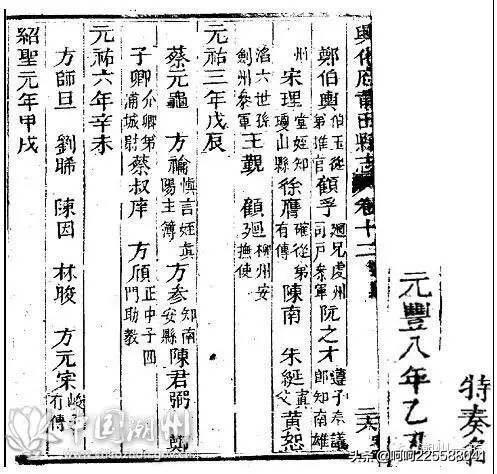 特奏名
元豐八年乙丑
興化府莆田縣志 卷十二
鄭伯輿 伯玉從弟推官 顧孚 逈兄虔州司戶參軍 阮之才 遵子奉議郎知南雄
州 宋理 堂姪知瓊山縣 徐膺 確從弟有傳 陳南 朱綖 父 黃恕
滔六世孫劍州參軍 王觀 顧 柳州安撫使
元祐三年戊辰
蔡元龜 方 慎言姪眞陽主簿 方參 知南安縣 陳君弼 鄭
子卿 介卿弟浦城尉 蔡叔庠 方頎 正中子四門助教
元祐六年辛未
方師旦 劉晞 陳因 林駿 方元宷 嶠子有傳
紹聖元年甲戌
中国潮州
头条 @呵呵225588041